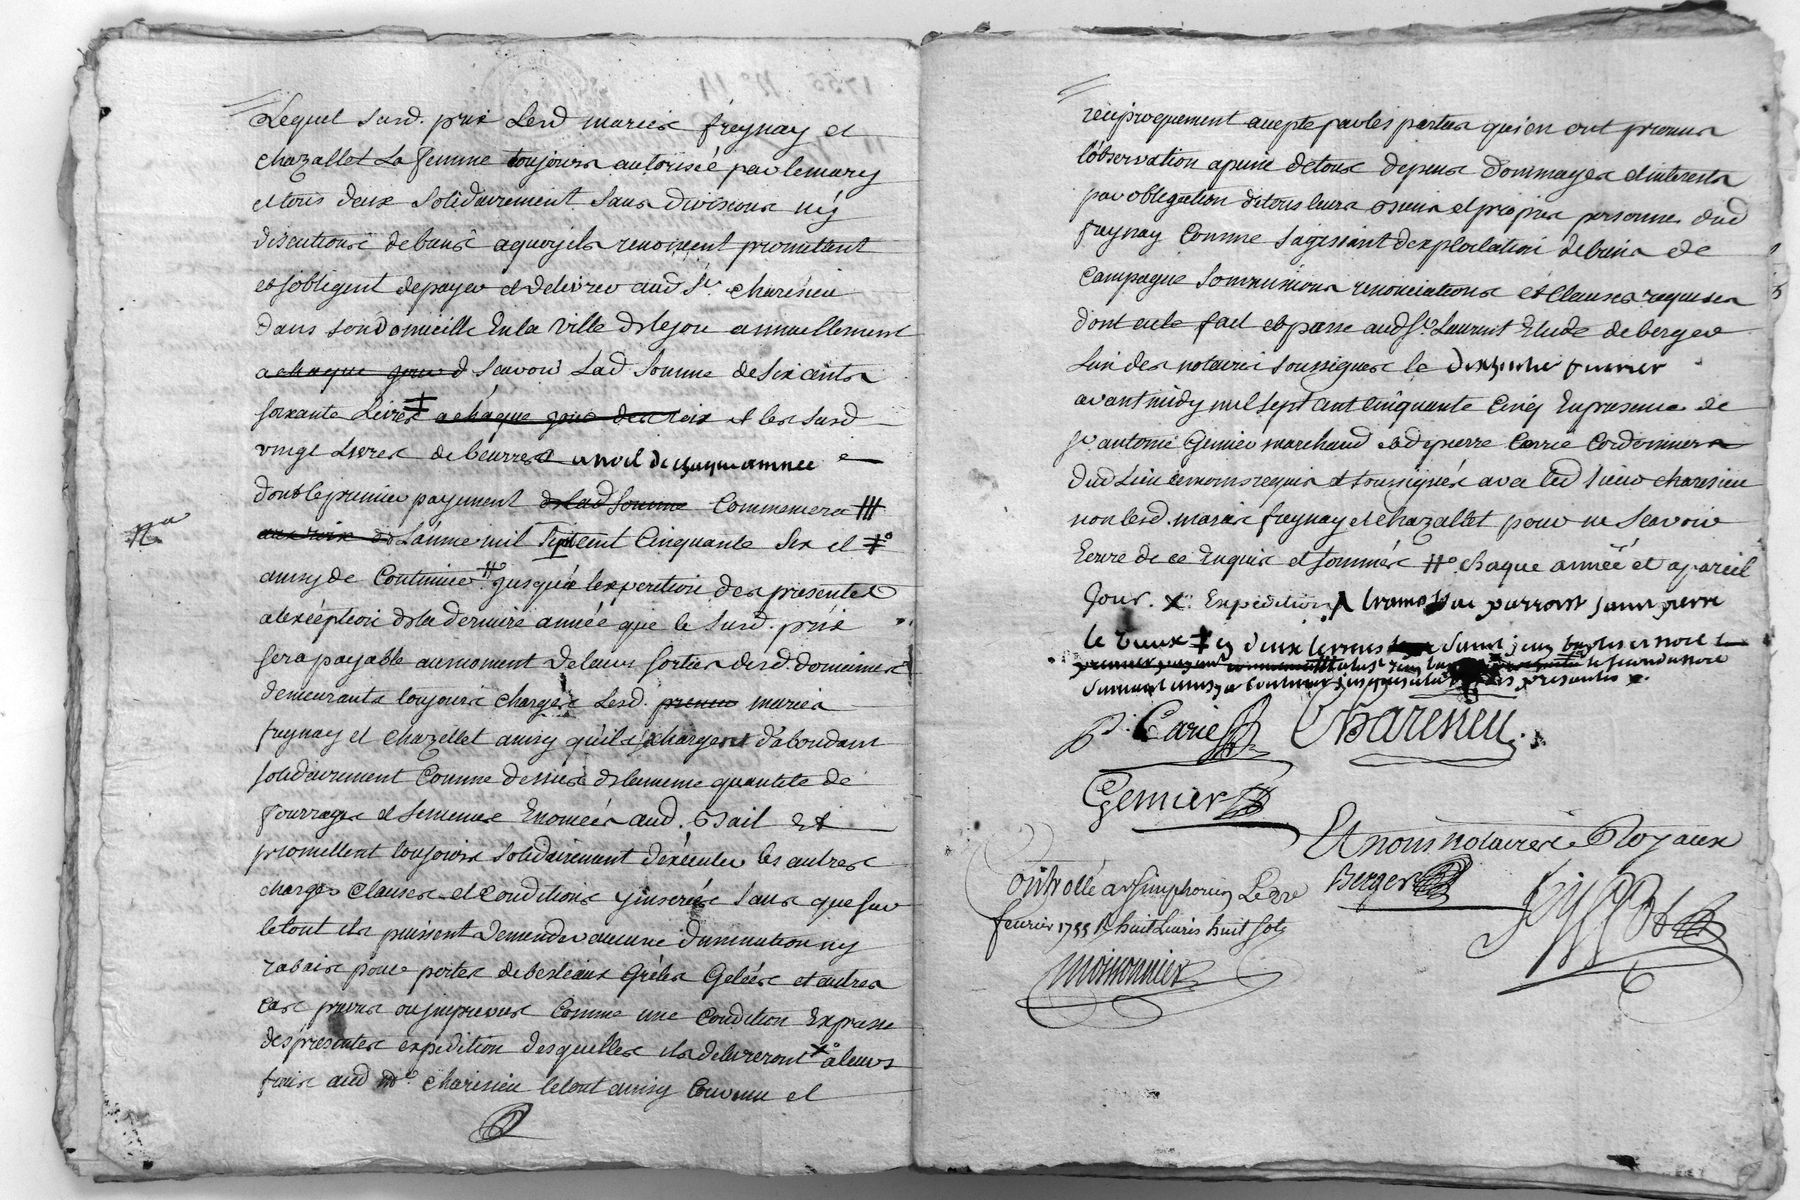 Lequel susd. prix Lesd mariés freynay et
chazallet La femme toujours autorisée par le mary
et tous deux solidairement sans divisions ny
discutions de biens a quoy ils renoncent promettent
et s'obligent de payer et delivrer aud Sr. charesieu
dans son domicille En la ville de annuellement
a chaque jour d scavoir Lad somme de six cents
soixante Livres a chaque jour des rois et les susd
vingt Livres de beurre a noel de chaque année
dont le premier payement de lad somme Commencera
aux rois de L'année mil sept cent Cinquante six et
ainsy de Continuer jusqu'a lexpiration des presentes
a lexception de la derniere année que le susd. prix
sera payable au moment de leurs sorties desd. domaines
demeurants toujours chargés Lesd. mariés
freynay et chazellet ainsy qu'ils se chargent d'abondant
solidairement Comme dessus de la meme quantité de
fourrages et semences Enoncées aud. Bail Et
promettent toujours solidairement d'executer les autres
charges clauses et conditions y inserés sans que sur
le tout ils puissent demander aucune diminution ny
rabais pour pertes de bestiaux Grêles Gelées et autres
cas prevus ou imprevus Comme une Condition Expresse
des presentes expedition desquelles ils delivreront a leurs
frais aud charesieu le tout ainsy Convenu et
reciproquement accepté par les parties qui en ont promis
l'observation a peine de tous depens dommages et interests
par obligation de tous leurs biens et propres personnes dud
freynay Comme s'agissant d'exploitation de biens de
Campagne soumissions renonciations et clauses requises
dont acte fait et passé aud St. Laurent Etude de berger
L'un des notaires soussignés le fevrier
avant midy mil sept cent cinquante Cinq En presence de
Sr. antoine Genier marchand et de pierre Carrie Cordonnier
dud Lieu temoins requis et soussignés avec led sieur charesieu
non lesd. mariés freynay et chazallet pour ne scavoir
Ecrire de ce Enquis et sommés chaque année et a pareil
Jour. x. Expedition
le vieux en deux termes saint jean baptiste et noel
presentes
P. Carie Charesieu
Genier
Et nous notaires Royaux
Berger
Controllé a St Simphorien Le
fevrier 1755 R huit Livres huit sols